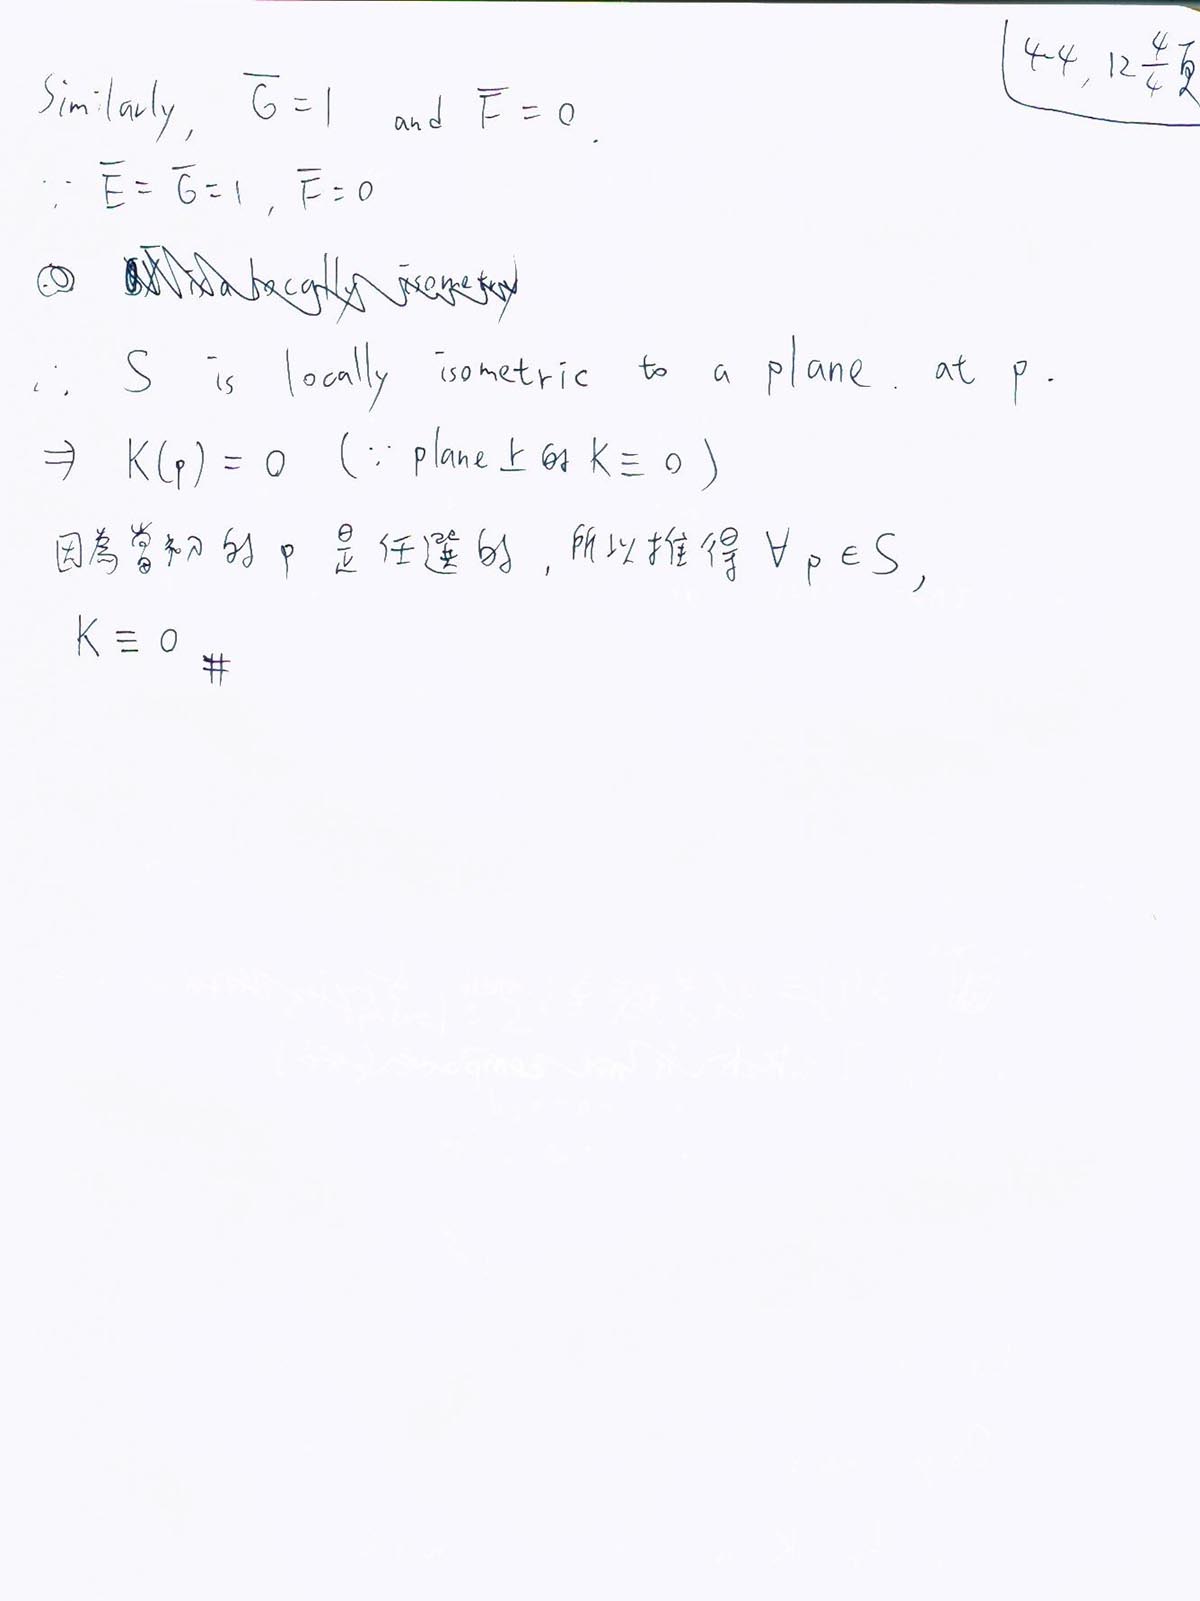 4-4, 12 4/4 頁
Similarly, G̅ = 1 and F̅ = 0.
∵ E̅ = G̅ = 1, F̅ = 0
∴ S is locally isometric to a plane. at p.
⇒ K(p) = 0 (∵ plane上的 K ≡ 0)
因為當初的 p 是任選的, 所以推得 ∀p ∈ S,
K ≡ 0 #